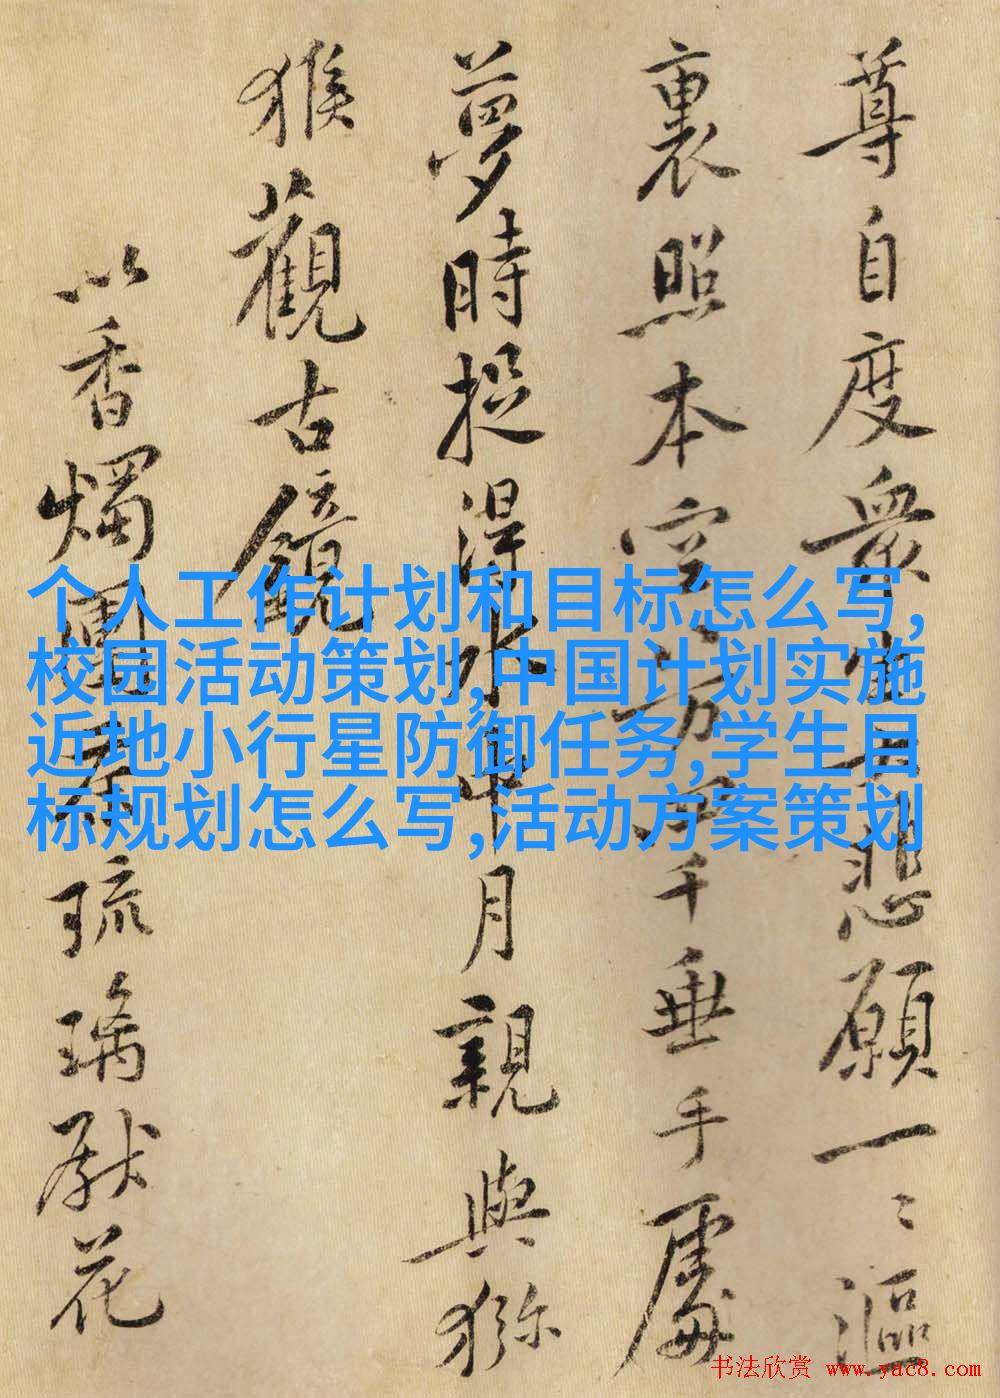 尊自度衆生大悲願一〻漚
裏照本空八方四千垂手處
夢時捉得水中月親與獼
猴觀古鏡
以香燭團茶琉璃獻花
个人工作计划和目标怎么写,
校园活动策划,中国计划实施
近地小行星防御任务,学生目
标规划怎么写,活动方案策划
书法欣赏 www.yac8.com